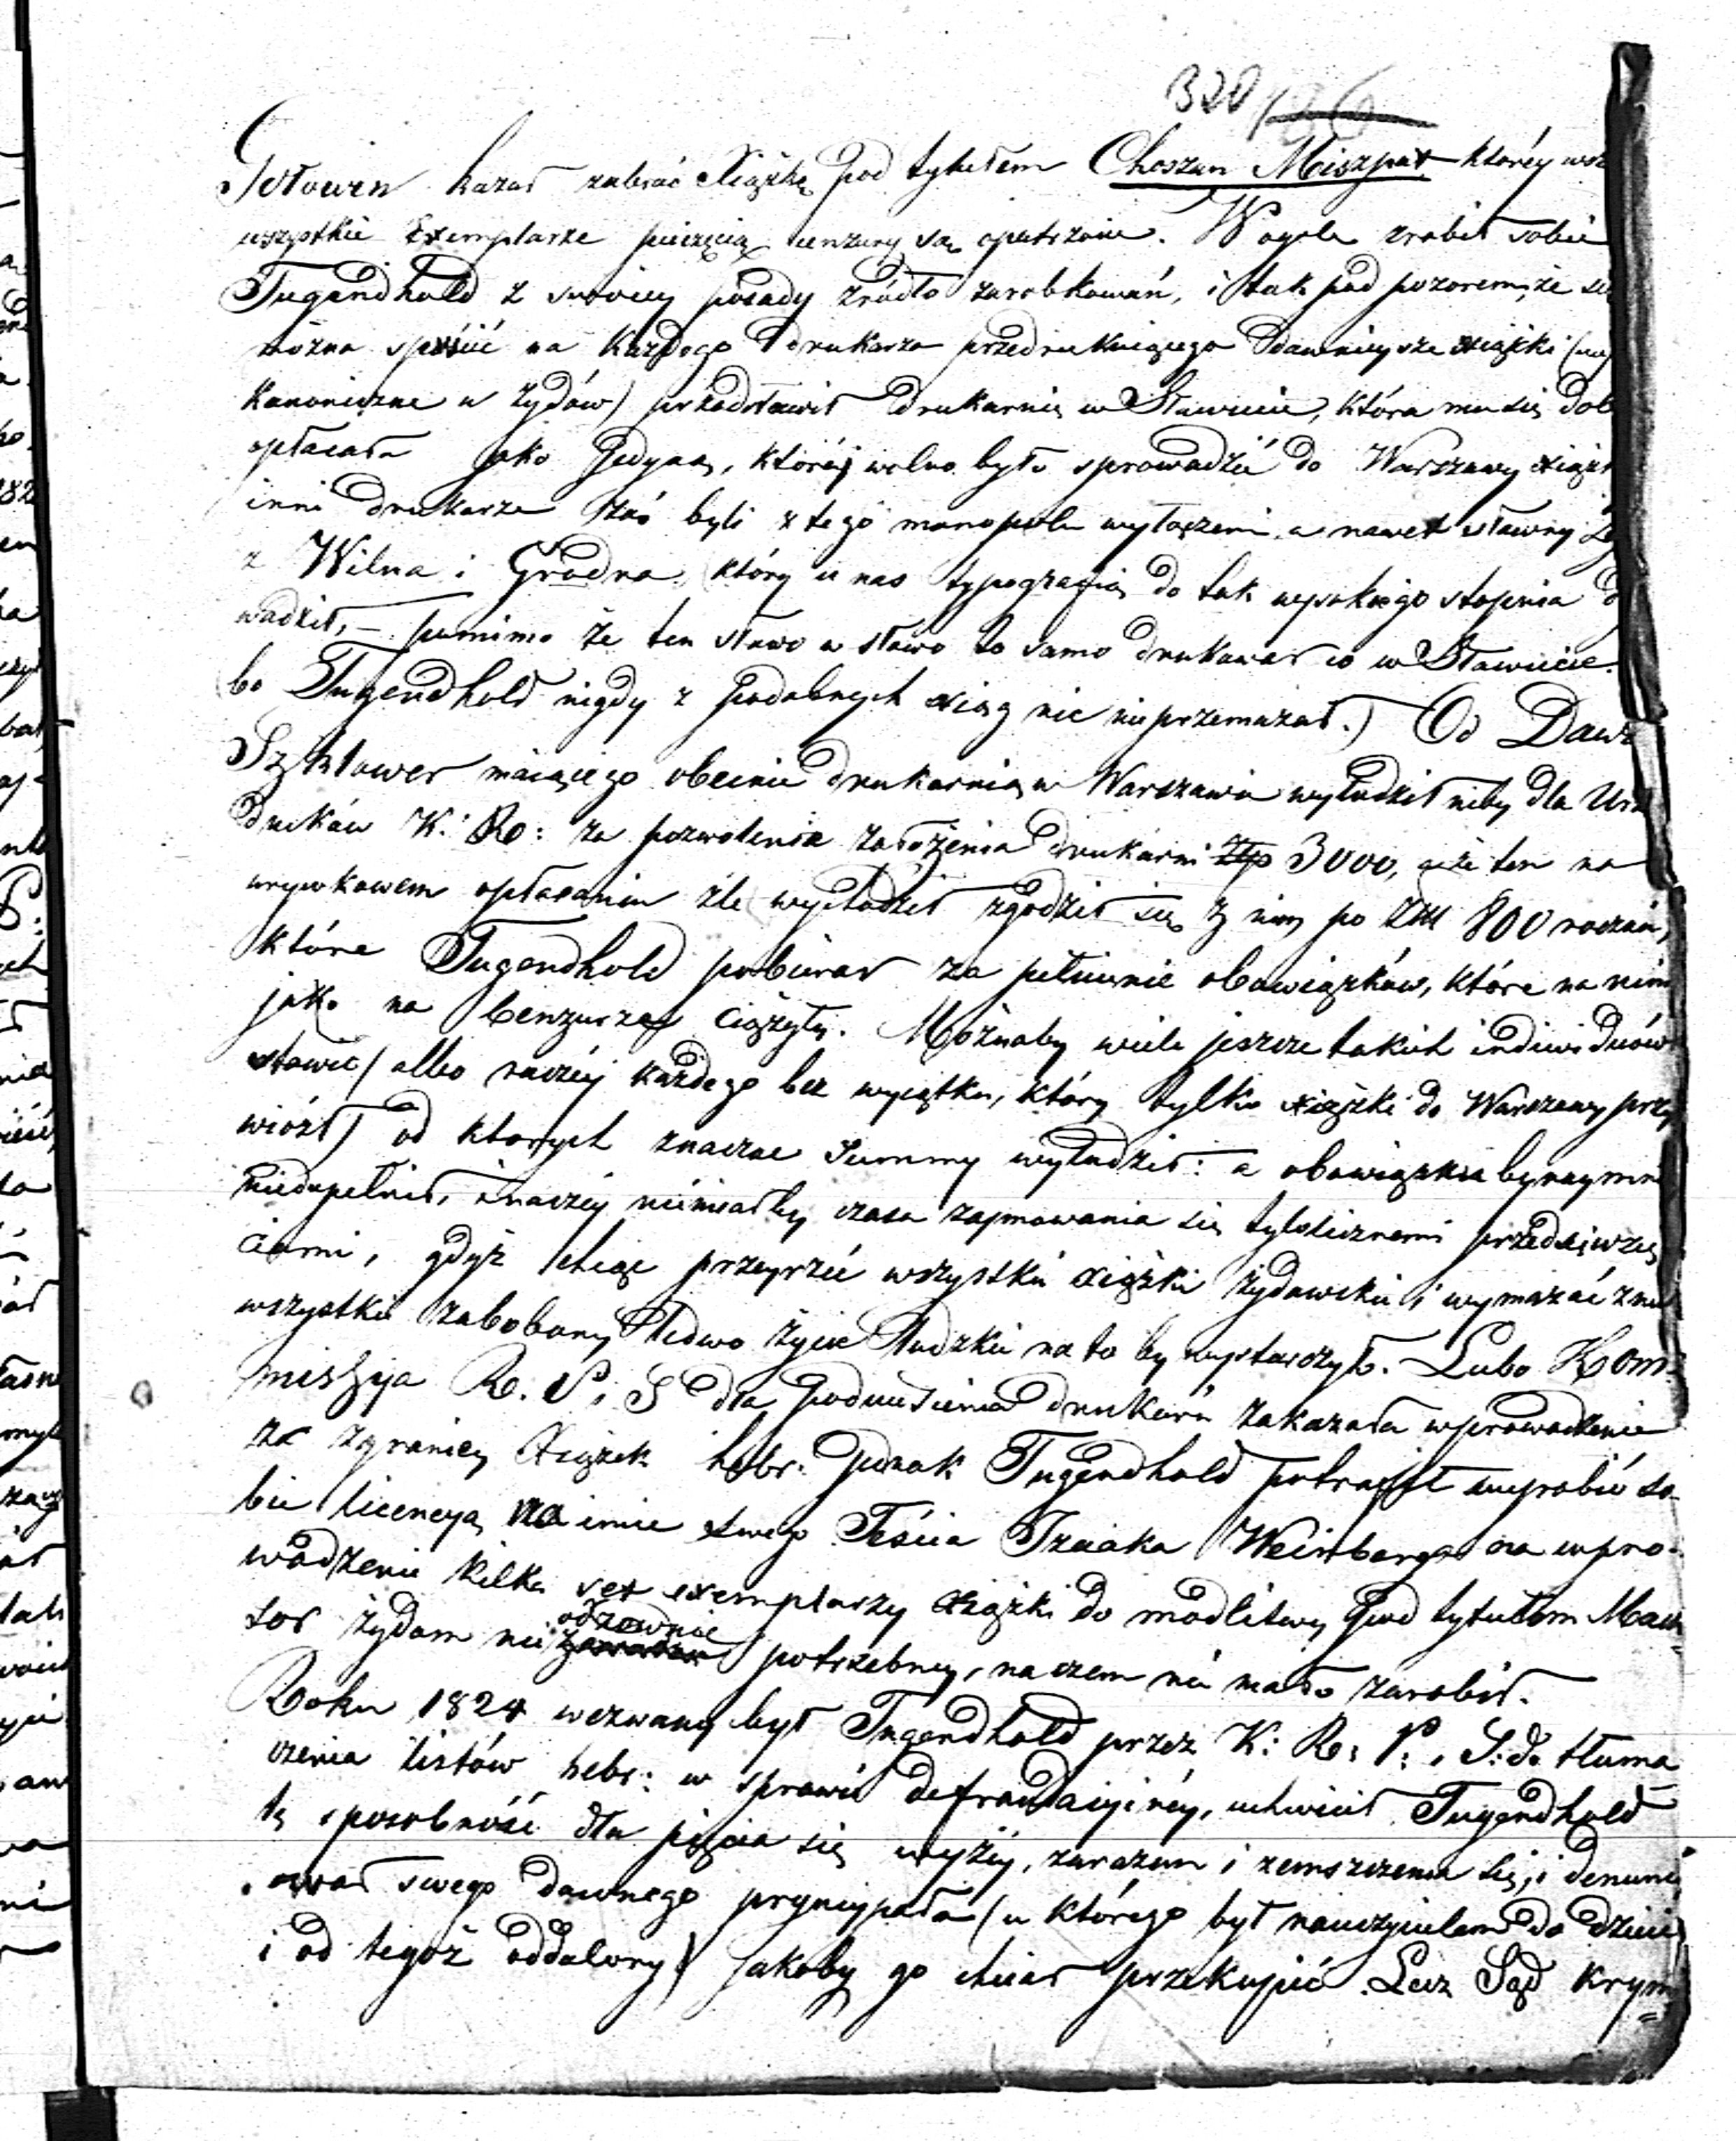 320
Getowin kazał zabrać Xiążkę pod tytułem Choszen Miszpat któréy
wszystkie Exemplarze pieczęcią cenzury są opatrzone. W ogole zrobił sobie
Tugendhold z swoiey posady źródło zarobkowań, i tak pod pozorem, że
można spuścić na każdego drukarza przedrukuiącego dawnieysze xiążki
kanoniczne u żydów) przedstawił drukarnię w Sławucie, która mu się
opłacała jako Jedyną, któréj wolno było sprowadzić do Warszawy
inni drukarze zaś byli z tego monopolu wyłączeni, a nawet sławny
z Wilna i Grodna, który u nas typografią do tak wysokiego stopnia
wadził, — pomimo że ten słowo w słowo to samo drukował co w Sławucie.
bo Tugendhold nigdy z podobnych xiąg nic nie przemazał.) Od
Szkłower maiącego obecnie drukarnią w Warszawie wyłudził niby dla
duików K: R: za pozwolenie założenia drukarni Złp 3000, a że ten na
urywkowem opłacaniu źle wychodził zgodził się z nim po Złll 800 rocznie,
które Tugendhold pobierał za pełnienie obowiązków, które na nim
jako na Cenzurze ciążyły. Możnaby wiele jeszcze takich indiwiduów
stawić (albo raczéy każdego bez wyiątku, który tylko xiążki do Warszawy przy
wiózł) od ktorych znaczne Summy wyłudził: a obowiązku
niedopełnił, inaczéy niemiałby czasu zaymowania się tylolicznemi przedsięwzię
ciami, gdyż chcąc przeyrzéć wszystkie xiążki żydowskie i wymazać z
wszystkie zabobony ledwo życie ludzkie na to by wystarczyło. Lubo Kom
missyja R. S. dla podniesienia drukarń zakazała wprowadzenie
za zgranicy Xiążek hebr: Jednak Tugendhold potrafił wyrobić so-
bie licencyą na imie swego Teścia Izaaka Weinberga na wpro-
wadzenie kilka set exemplarzy xiążki do modlitwy pod tytułem Mach
sor żydom nie odzownie potrzebney, na czem nie mało zarobił.
Roku 1824 wezwany był Tugendhold przez K: R: P: i S: do tłuma
czenia listów hebr: w sprawie defraudacyjnéy, uchwicił Tugendhold
tę sposobność dla pięcia się wyżéy, zarazem i zemszczenia się, i denunci
ował swego dawnego pryncypała (u którego był nauczycielem do dzieci
i od tegoż oddalony) Jakoby go chciał przekupić. Lecz Sąd Krym